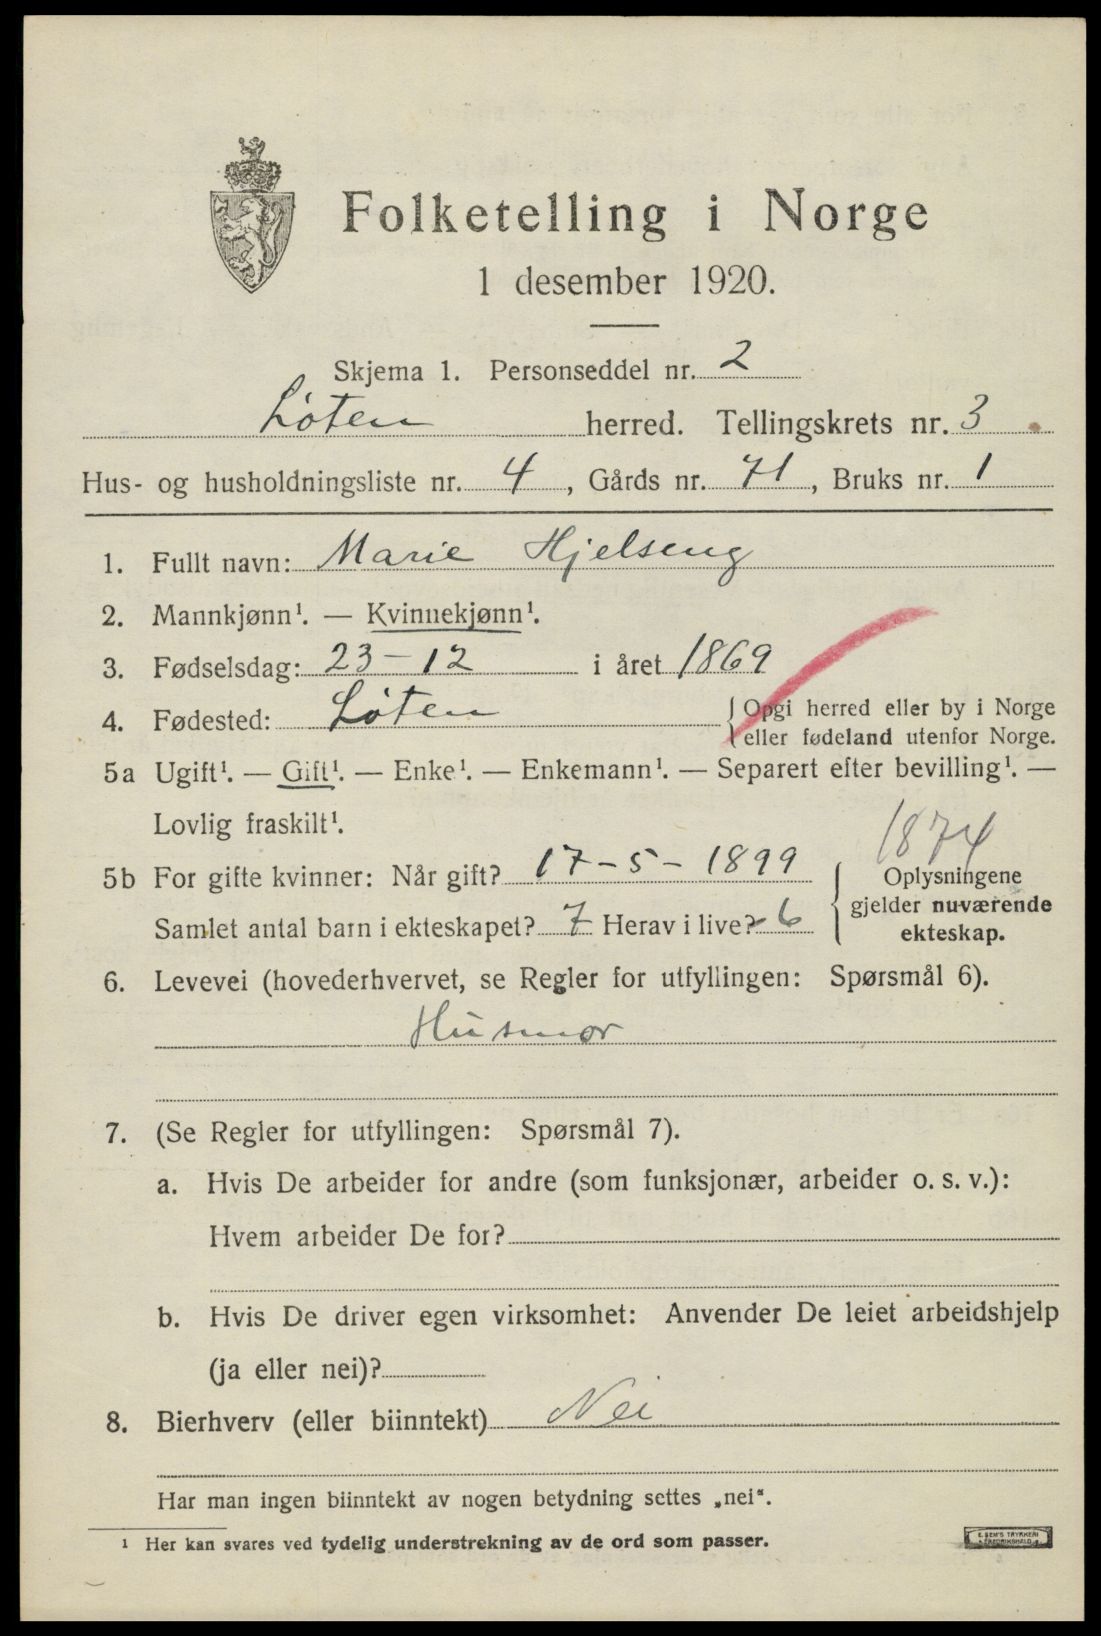 Folketelling i Norge
1 desember 1920.
Skjema 1. Personseddel nr. 2
Løten herred. Tellingskrets nr. 3
Hus- og husholdningsliste nr. 4, Gårds nr. 71, Bruks nr. 1
1. Fullt navn: Marie Hjelseng
2. Mannkjønn¹. — Kvinnekjønn¹.
3. Fødselsdag: 23-12 i året 1869
4. Fødested: Løten {Opgi herred eller by i Norge
eller fødeland utenfor Norge.
5a Ugift¹. — Gift¹. — Enke¹. — Enkemann¹. — Separert efter bevilling¹. —
Lovlig fraskilt¹.
1874
5b For gifte kvinner: Når gift? 17-5-1899 { Oplysningene
gjelder nuværende
Samlet antal barn i ekteskapet? 7 Herav i live? 6
ekteskap.
6. Levevei (hovederhvervet, se Regler for utfyllingen: Spørsmål 6).
Husmor
7. (Se Regler for utfyllingen: Spørsmål 7).
a. Hvis De arbeider for andre (som funksjonær, arbeider o. s. v.):
Hvem arbeider De for?
b. Hvis De driver egen virksomhet: Anvender De leiet arbeidshjelp
(ja eller nei)?
8. Bierhverv (eller biinntekt) Nei
Har man ingen biinntekt av nogen betydning settes „nei“.
¹ Her kan svares ved tydelig understrekning av de ord som passer.